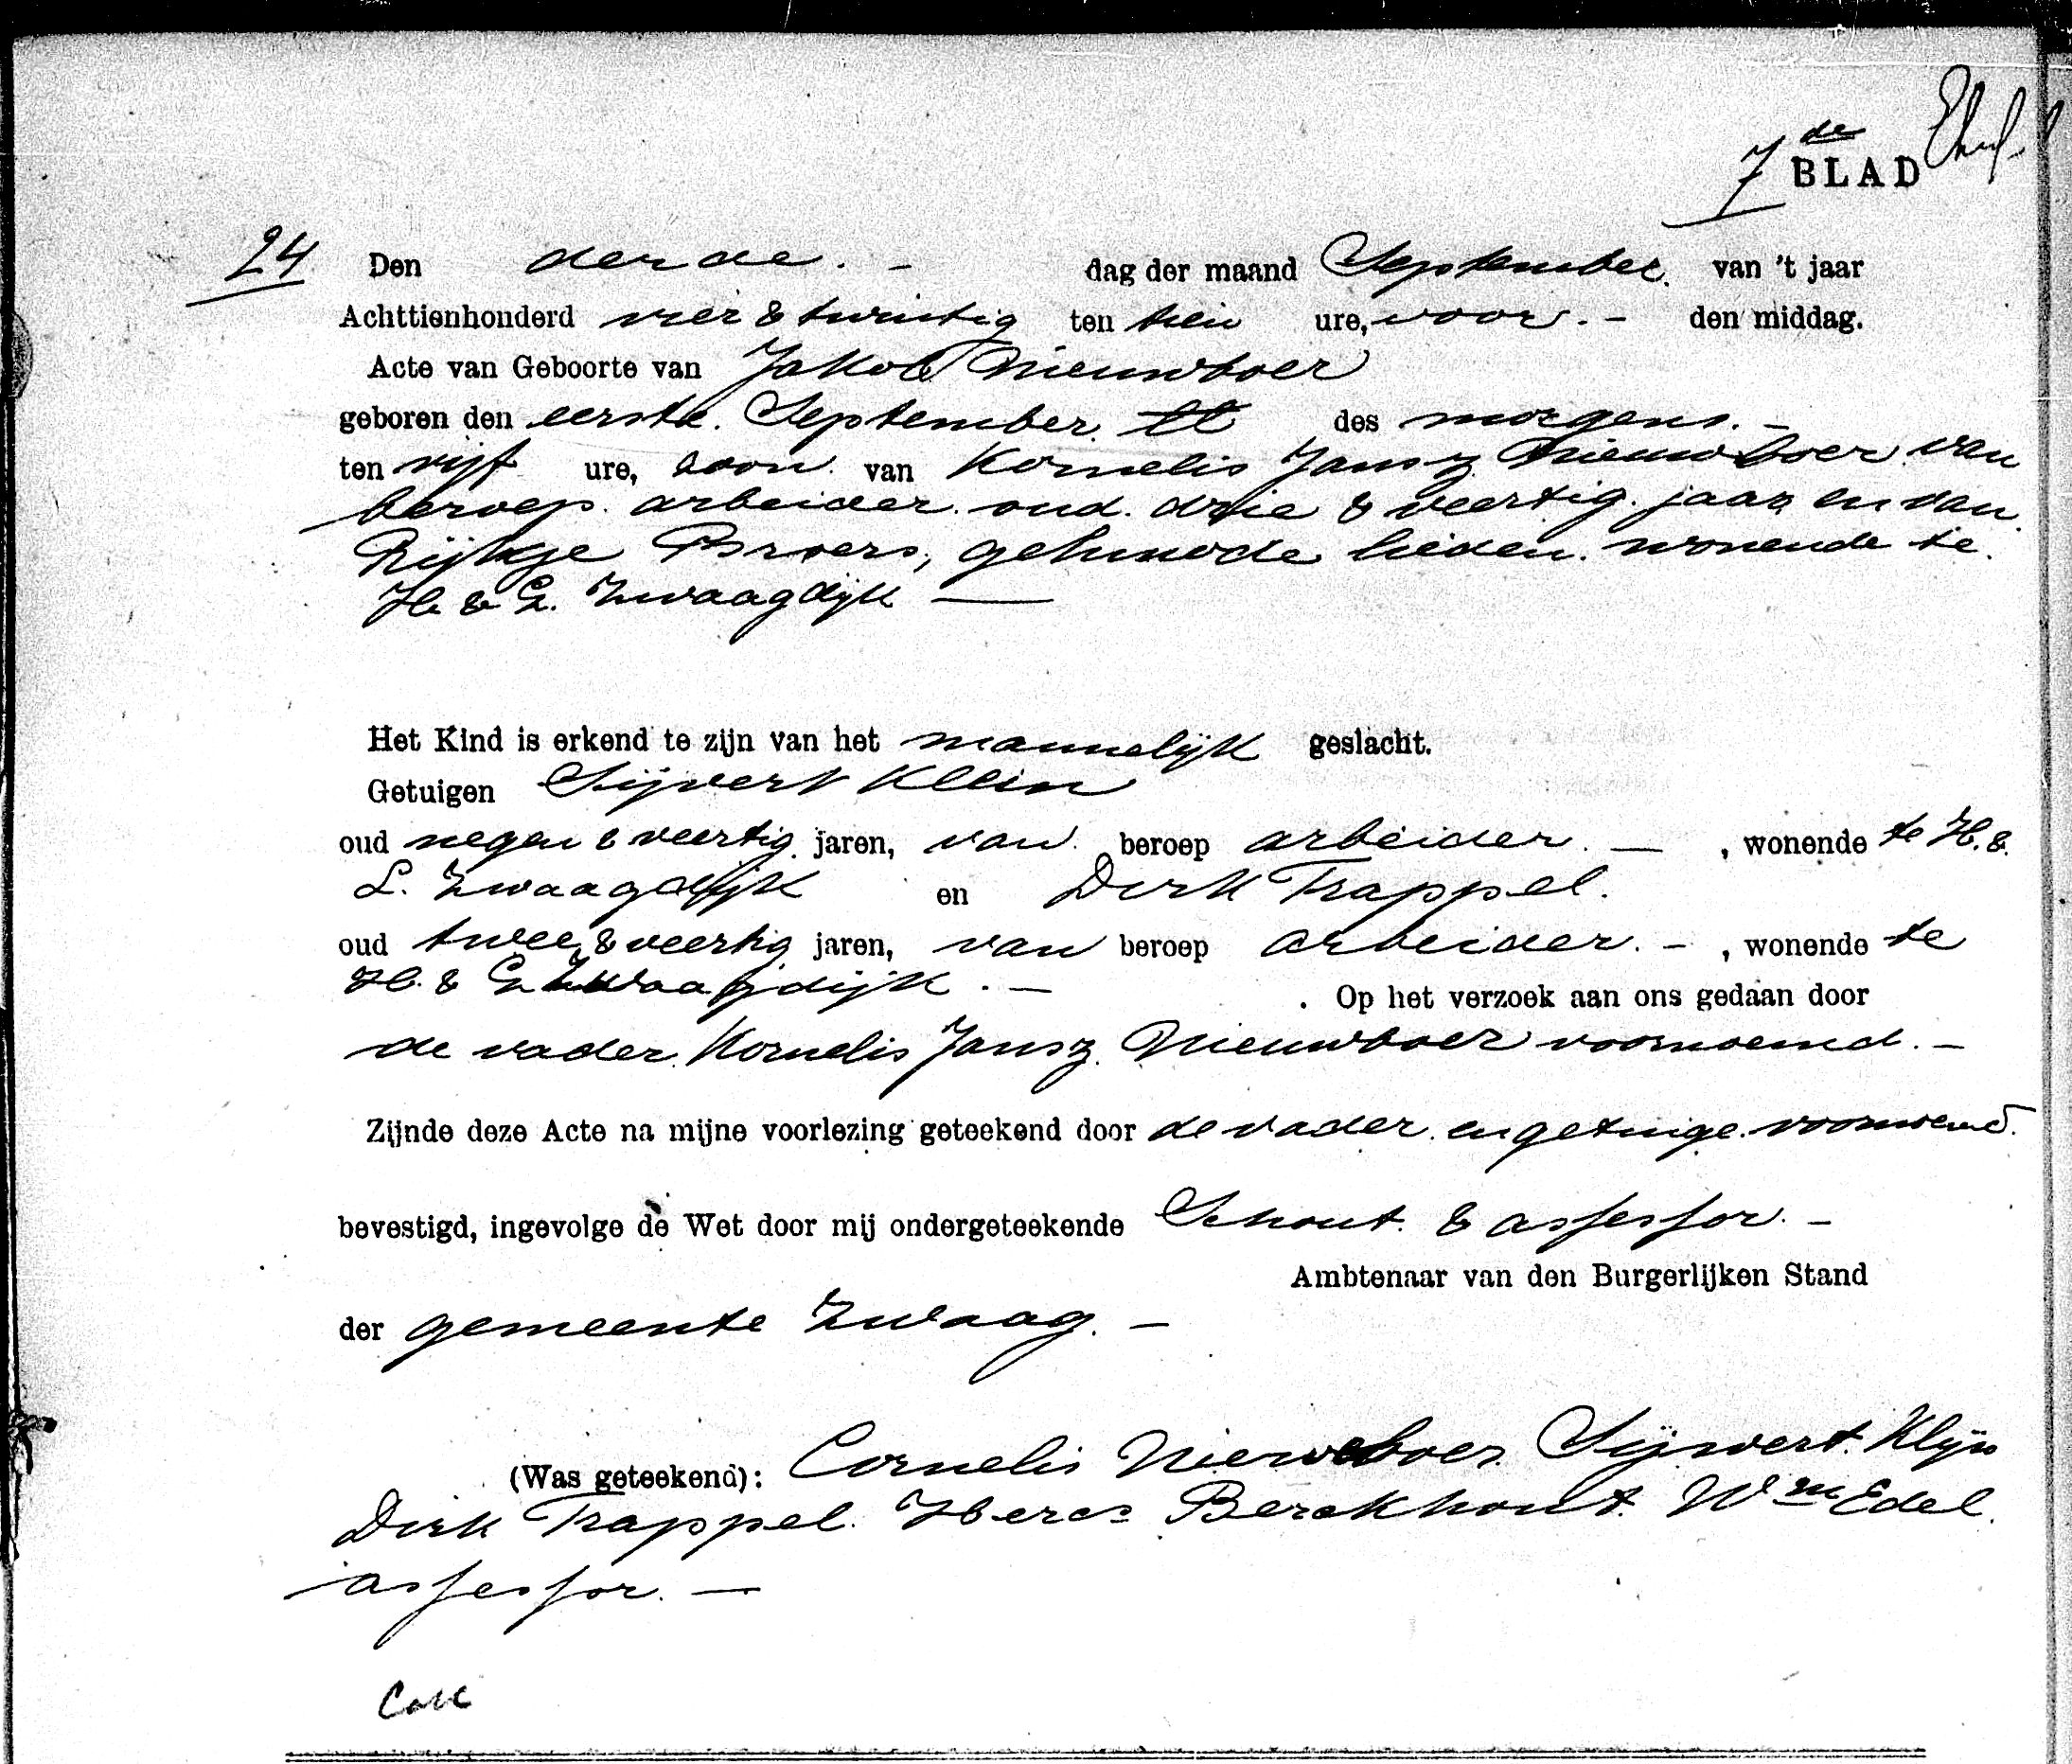 7de BLAD
24 Den derde. - dag der maand September. van 't jaar
Achttienhonderd vier & twintig ten tien ure, voor. - den middag.
Acte van Geboorte van Jakob Nieuwboer
geboren den eerste. September. ll des morgens. -
ten vijf ure, zoon. van Kornelis Jansz Nieuwboer van
beroep. arbeider. oud. drie & veertig. jaar en van.
Rijkje Broers, gehuwde lieden. wonende te.
H & L. Zwaagdijk —
Het Kind is erkend te zijn van het mannelijk geslacht.
Getuigen Sijvert Klein
oud negen & veertig. jaren, van. beroep arbeider. — , wonende te H. &.
L. Zwaagdijk en Dirk Trappel.
oud twee & veertig jaren, van beroep arbeider. - , wonende te
H. & L Zwaagdijk. — . Op het verzoek aan ons gedaan door
de vader. Kornelis Jansz. Nieuwboer voornoemd. -
Zijnde deze Acte na mijne voorlezing geteekend door de vader. en getuige. voornoemd.
bevestigd, ingevolge de Wet door mij ondergeteekende Schout. & assessor. -
Ambtenaar van den Burgerlijken Stand
der gemeente Zwaag. -
(Was geteekend): Cornelis Nieweboer Sijwert. Klijn
Dirk Trappel. Hercs Berckhout. Wm Edel.
assessor. —